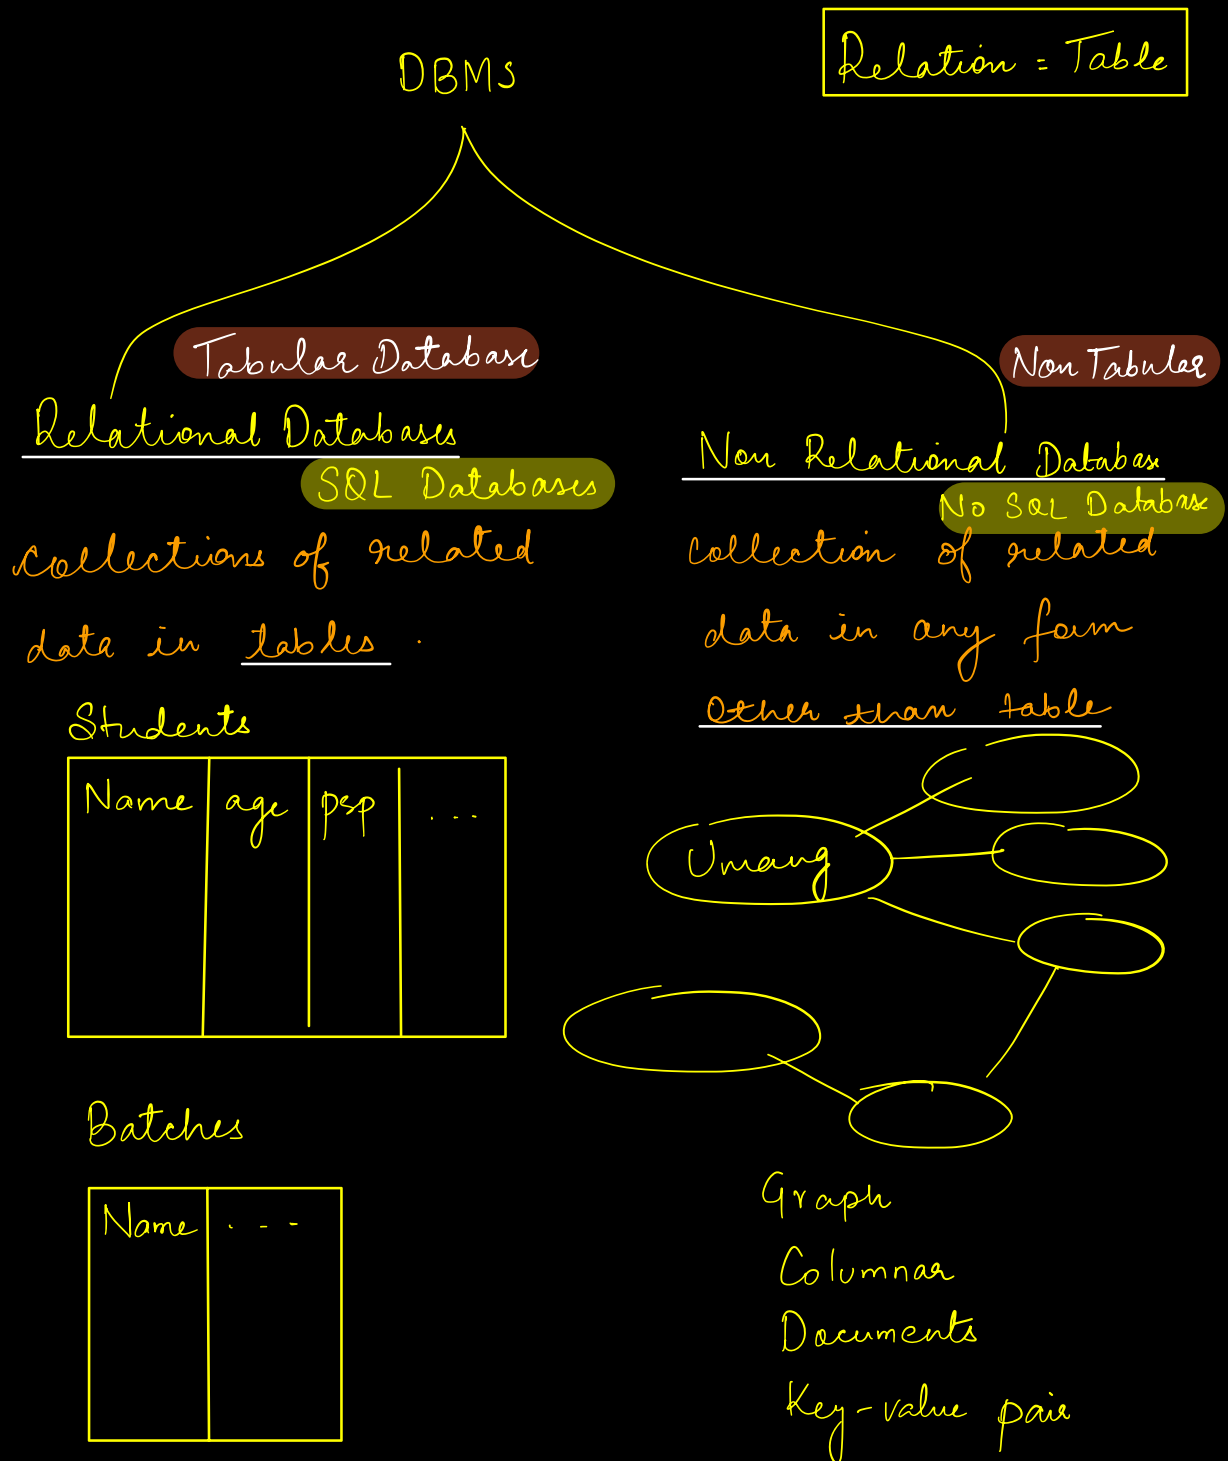 DBMS
Relation = Table
Tabular Database
Non Tabular
Relational Databases
SQL Databases
collections of related
data in tables .
Students
Name age psp ...
Batches
Name . - -
Non Relational Database
No SQL Database
collection of related
data in any form
Other than table
Umang
Graph
Columnar
Documents
Key-value pair